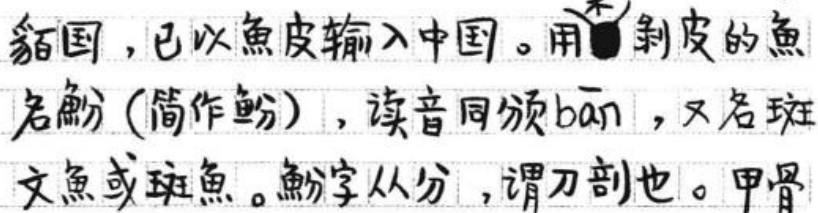 貊国，已以魚皮输入中国。用来剥皮的魚
名魵（简作鲼），读音同颁bān，又名斑
文魚或斑魚。魵字从分，谓刀剖也。甲骨